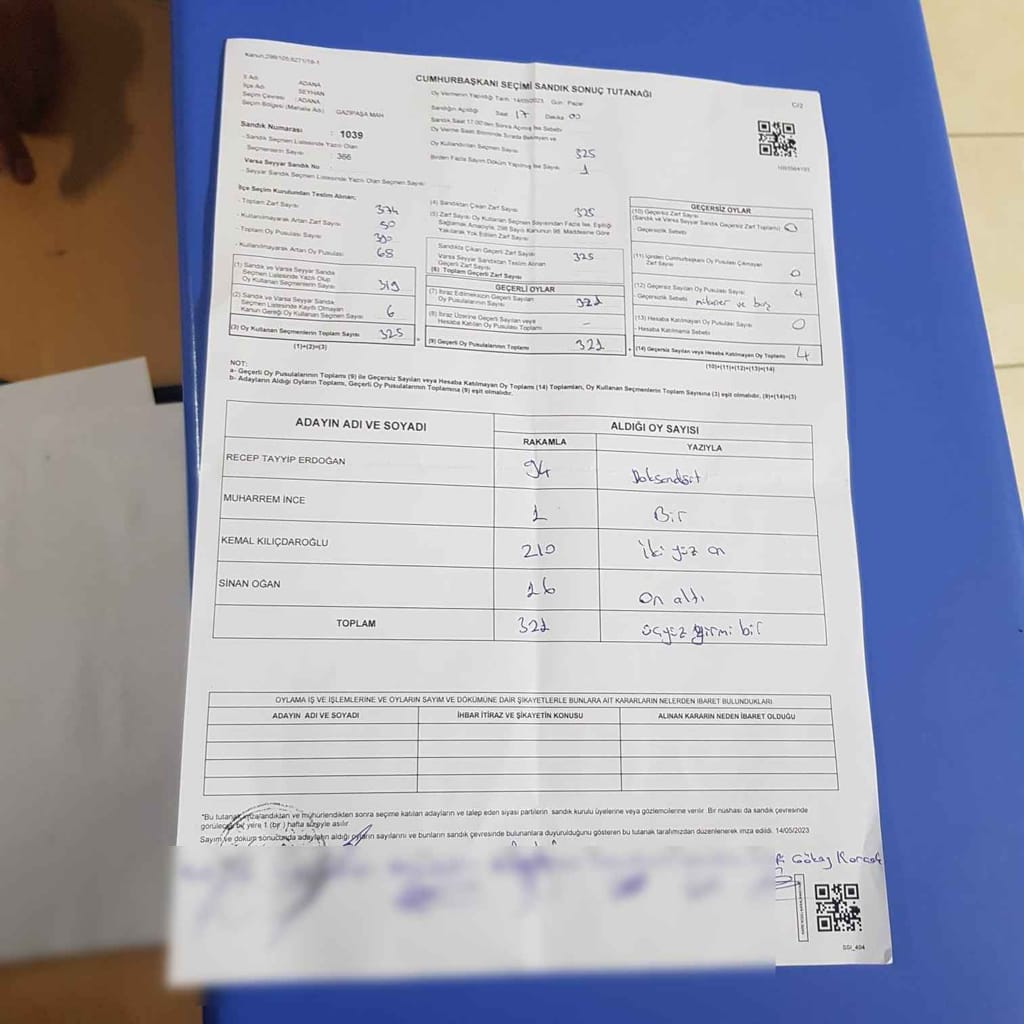 Kanun:298/105;6271/19-1
CUMHURBAŞKANI SEÇİMİ SANDIK SONUÇ TUTANAĞI
C/2
İl Adı : ADANA
İlçe Adı : SEYHAN
Seçim Çevresi : ADANA
Seçim Bölgesi (Mahalle Adı) : GAZİPAŞA MAH
Sandık Numarası : 1039
- Sandık Seçmen Listesinde Yazılı Olan
Seçmenlerin Sayısı : 366
Varsa Seyyar Sandık No
- Seyyar Sandık Seçmen Listesinde Yazılı Olan Seçmen Sayısı:
Oy Vermenin Yapıldığı Tarih: 14/05/2023 Gün: Pazar
Sandığın Açıldığı Saat 17 Dakika 00
Sandık Saat 17.00'den Sonra Açılmış İse Sebebi
Oy Verme Saati Bitiminde Sırada Bekleyen ve
Oy Kullandırılan Seçmen Sayısı: 325
Birden Fazla Sayım Döküm Yapılmış İse Sayısı: 1
İlçe Seçim Kurulundan Teslim Alınan;
- Toplam Zarf Sayısı: 374
- Kullanılmayarak Artan Zarf Sayısı: 50
- Toplam Oy Pusulası Sayısı:
- Kullanılmayarak Artan Oy Pusulası: 68
(1) Sandık ve Varsa Seyyar Sandık
Seçmen Listesinde Yazılı Olup
Oy Kullanan Seçmenlerin Sayısı 319
(2) Sandık ve Varsa Seyyar Sandık
Seçmen Listesinde Kayıtlı Olmayan
Kanun Gereği Oy Kullanan Seçmen Sayısı 6
(3) Oy Kullanan Seçmenlerin Toplam Sayısı 325
(1)+(2)=(3)
(4) Sandıktan Çıkan Zarf Sayısı 325
(5) Zarf Sayısı Oy Kullanan Seçmen Sayısından Fazla İse, Eşitliği
Sağlamak Amacıyla, 298 Sayılı Kanunun 98. Maddesine Göre
Yakılarak Yok Edilen Zarf Sayısı:
Sandıkta Çıkan Geçerli Zarf Sayısı 325
Varsa Seyyar Sandıktan Teslim Alınan
Geçerli Zarf Sayısı
(6) Toplam Geçerli Zarf Sayısı
GEÇERLİ OYLAR
(7) İtiraz Edilmeksizin Geçerli Sayılan
Oy Pusulalarının Sayısı: 321
(8) İtiraz Üzerine Geçerli Sayılan veya
Hesaba Katılan Oy Pusulası Toplamı –
(9) Geçerli Oy Pusulalarının Toplamı 321
GEÇERSİZ OYLAR
(10) Geçersiz Zarf Sayısı
(Sandık ve Varsa Seyyar Sandık Geçersiz Zarf Toplamı) 0
- Geçersizlik Sebebi
(11) İçinden Cumhurbaşkanı Oy Pusulası Çıkmayan
Zarf Sayısı 0
(12) Geçersiz Sayılan Oy Pusulası Sayısı 4
- Geçersizlik Sebebi ve boş
(13) Hesaba Katılmayan Oy Pusulası Sayısı 0
- Hesaba Katılmama Sebebi
(14) Geçersiz Sayılan veya Hesaba Katılmayan Oy Toplamı 4
(10)+(11)+(12)+(13)=(14)
NOT:
a- Geçerli Oy Pusulalarının Toplamı (9) ile Geçersiz Sayılan veya Hesaba Katılmayan Oy Toplamı (14) Toplamları, Oy Kullanan Seçmenlerin Toplam Sayısına (3) eşit olmalıdır, (9)+(14)=(3)
b- Adayların Aldığı Oyların Toplamı, Geçerli Oy Pusulalarının Toplamına (9) eşit olmalıdır.
ADAYIN ADI VE SOYADI
ALDIĞI OY SAYISI
RAKAMLA YAZIYLA
RECEP TAYYİP ERDOĞAN 94 Doksandört
MUHARREM İNCE 1 Bir
KEMAL KILIÇDAROĞLU 210 iki yüz on
SİNAN OĞAN 16 On altı
TOPLAM 321 üçyüz yirmi bir
OYLAMA İŞ VE İŞLEMLERİNE VE OYLARIN SAYIM VE DÖKÜMÜNE DAİR ŞİKAYETLERLE BUNLARA AİT KARARLARIN NELERDEN İBARET BULUNDUKLARI
ADAYIN ADI VE SOYADI İHBAR İTİRAZ VE ŞİKAYETİN KONUSU ALINAN KARARIN NEDEN İBARET OLDUĞU
"Bu tutanak imzalandıktan ve mühürlendikten sonra seçime katılan adayların ve talep eden siyasi partilerin sandık kurulu üyelerine veya gözlemcilerine verilir. Bir nüshası da sandık çevresinde
görülecek bir yere 1 (bir) hafta süreyle asılır
Sayım ve döküm sonucunda adayların aldığı oyların sayılarını ve bunların sandık çevresinde bulunanlara duyurulduğunu gösteren bu tutanak tarafımızdan düzenlenerek imza edildi. 14/05/2023
SSİ_404